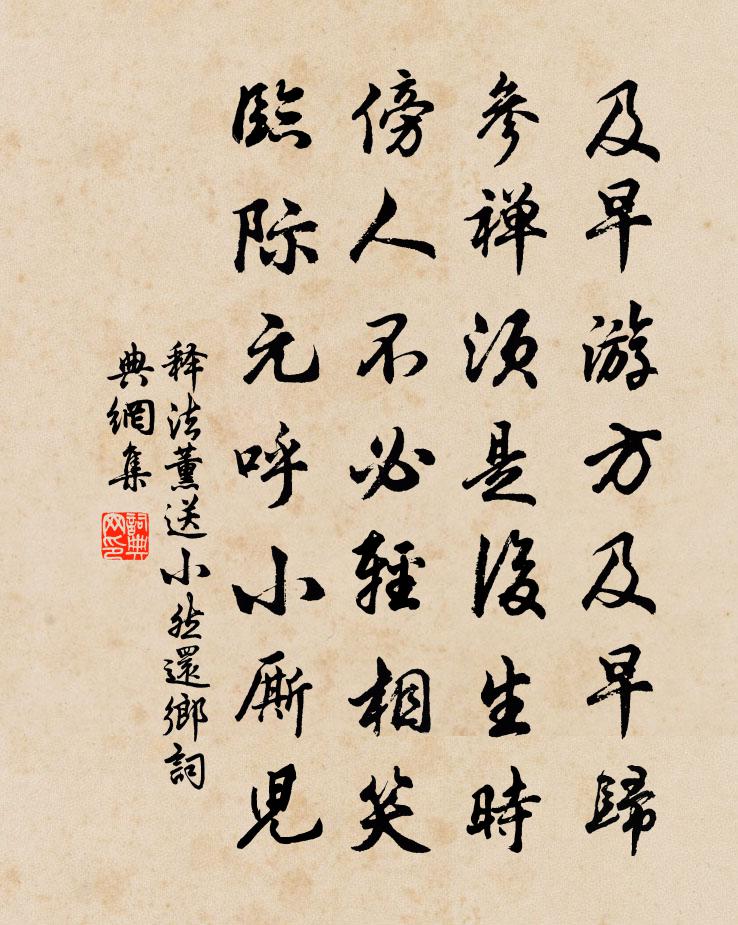 及早游方及早歸
參禅須是後生時
傍人不必輕相笑
臨际元呼小厮児
释法薰送小然還鄉詞
典網集
詞典网印